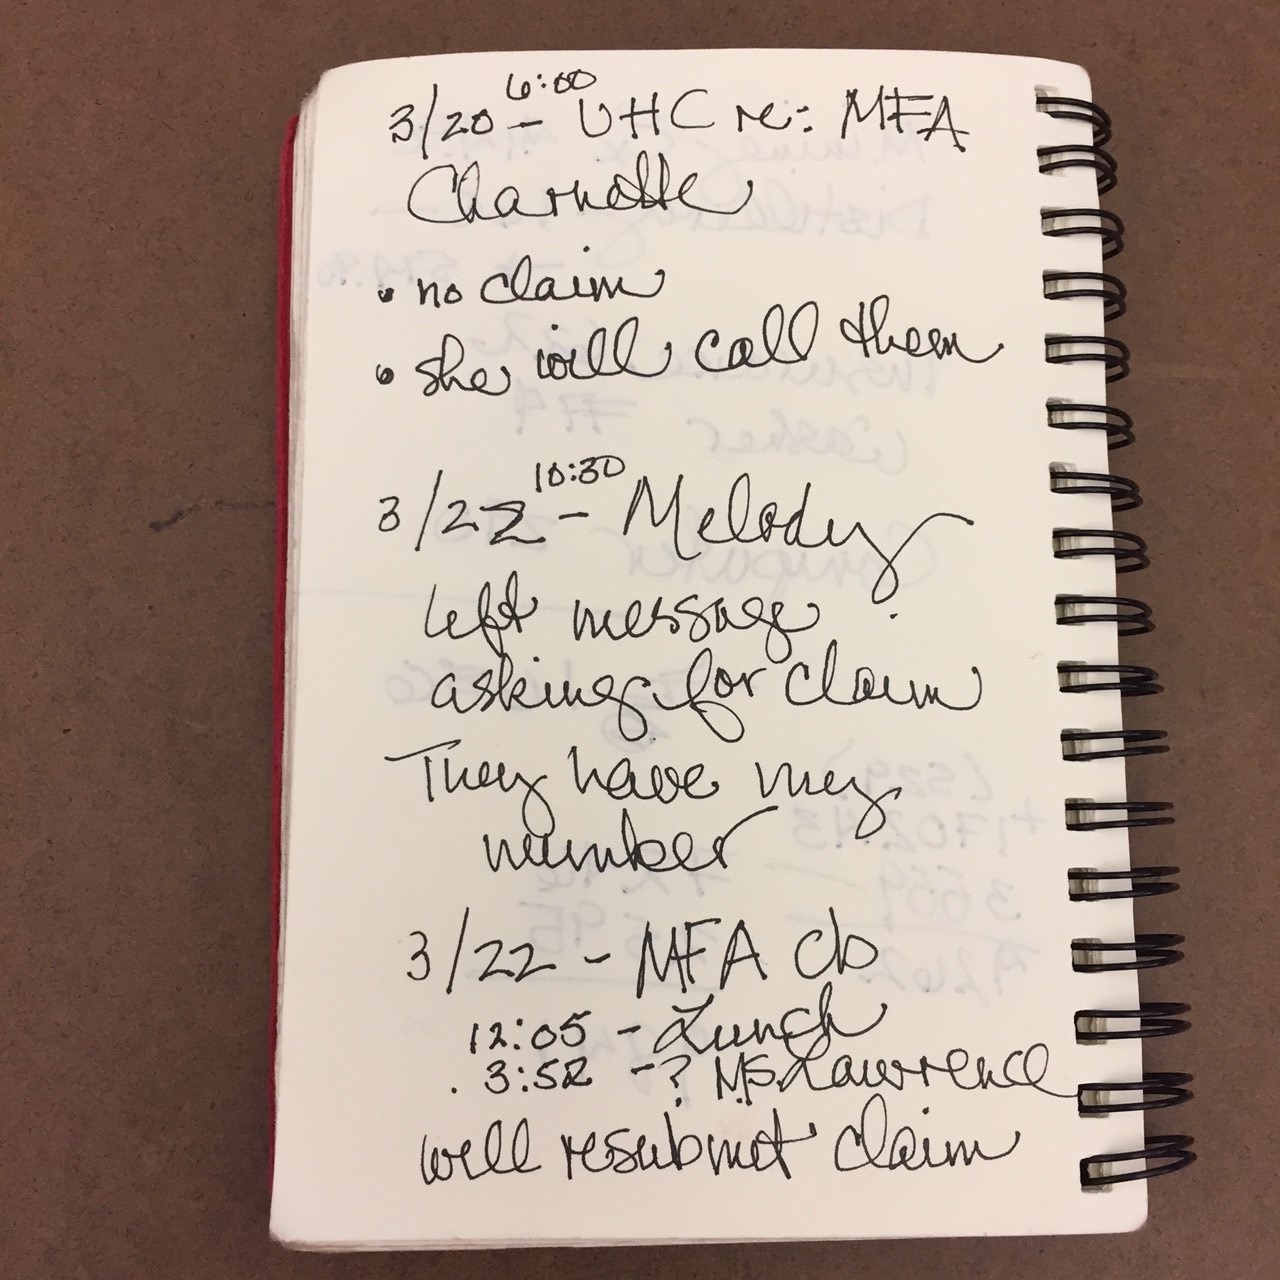 6:00
3/20 - UHC re: MFA
Charnette
• no claim
• she will call them
10:30
3/22 - Melody
left message
asking for claim
They have my
number
3/22 - MFA cb
12:05 - Lunch
3:52 - ? Ms. Lawrence
will resubmit claim